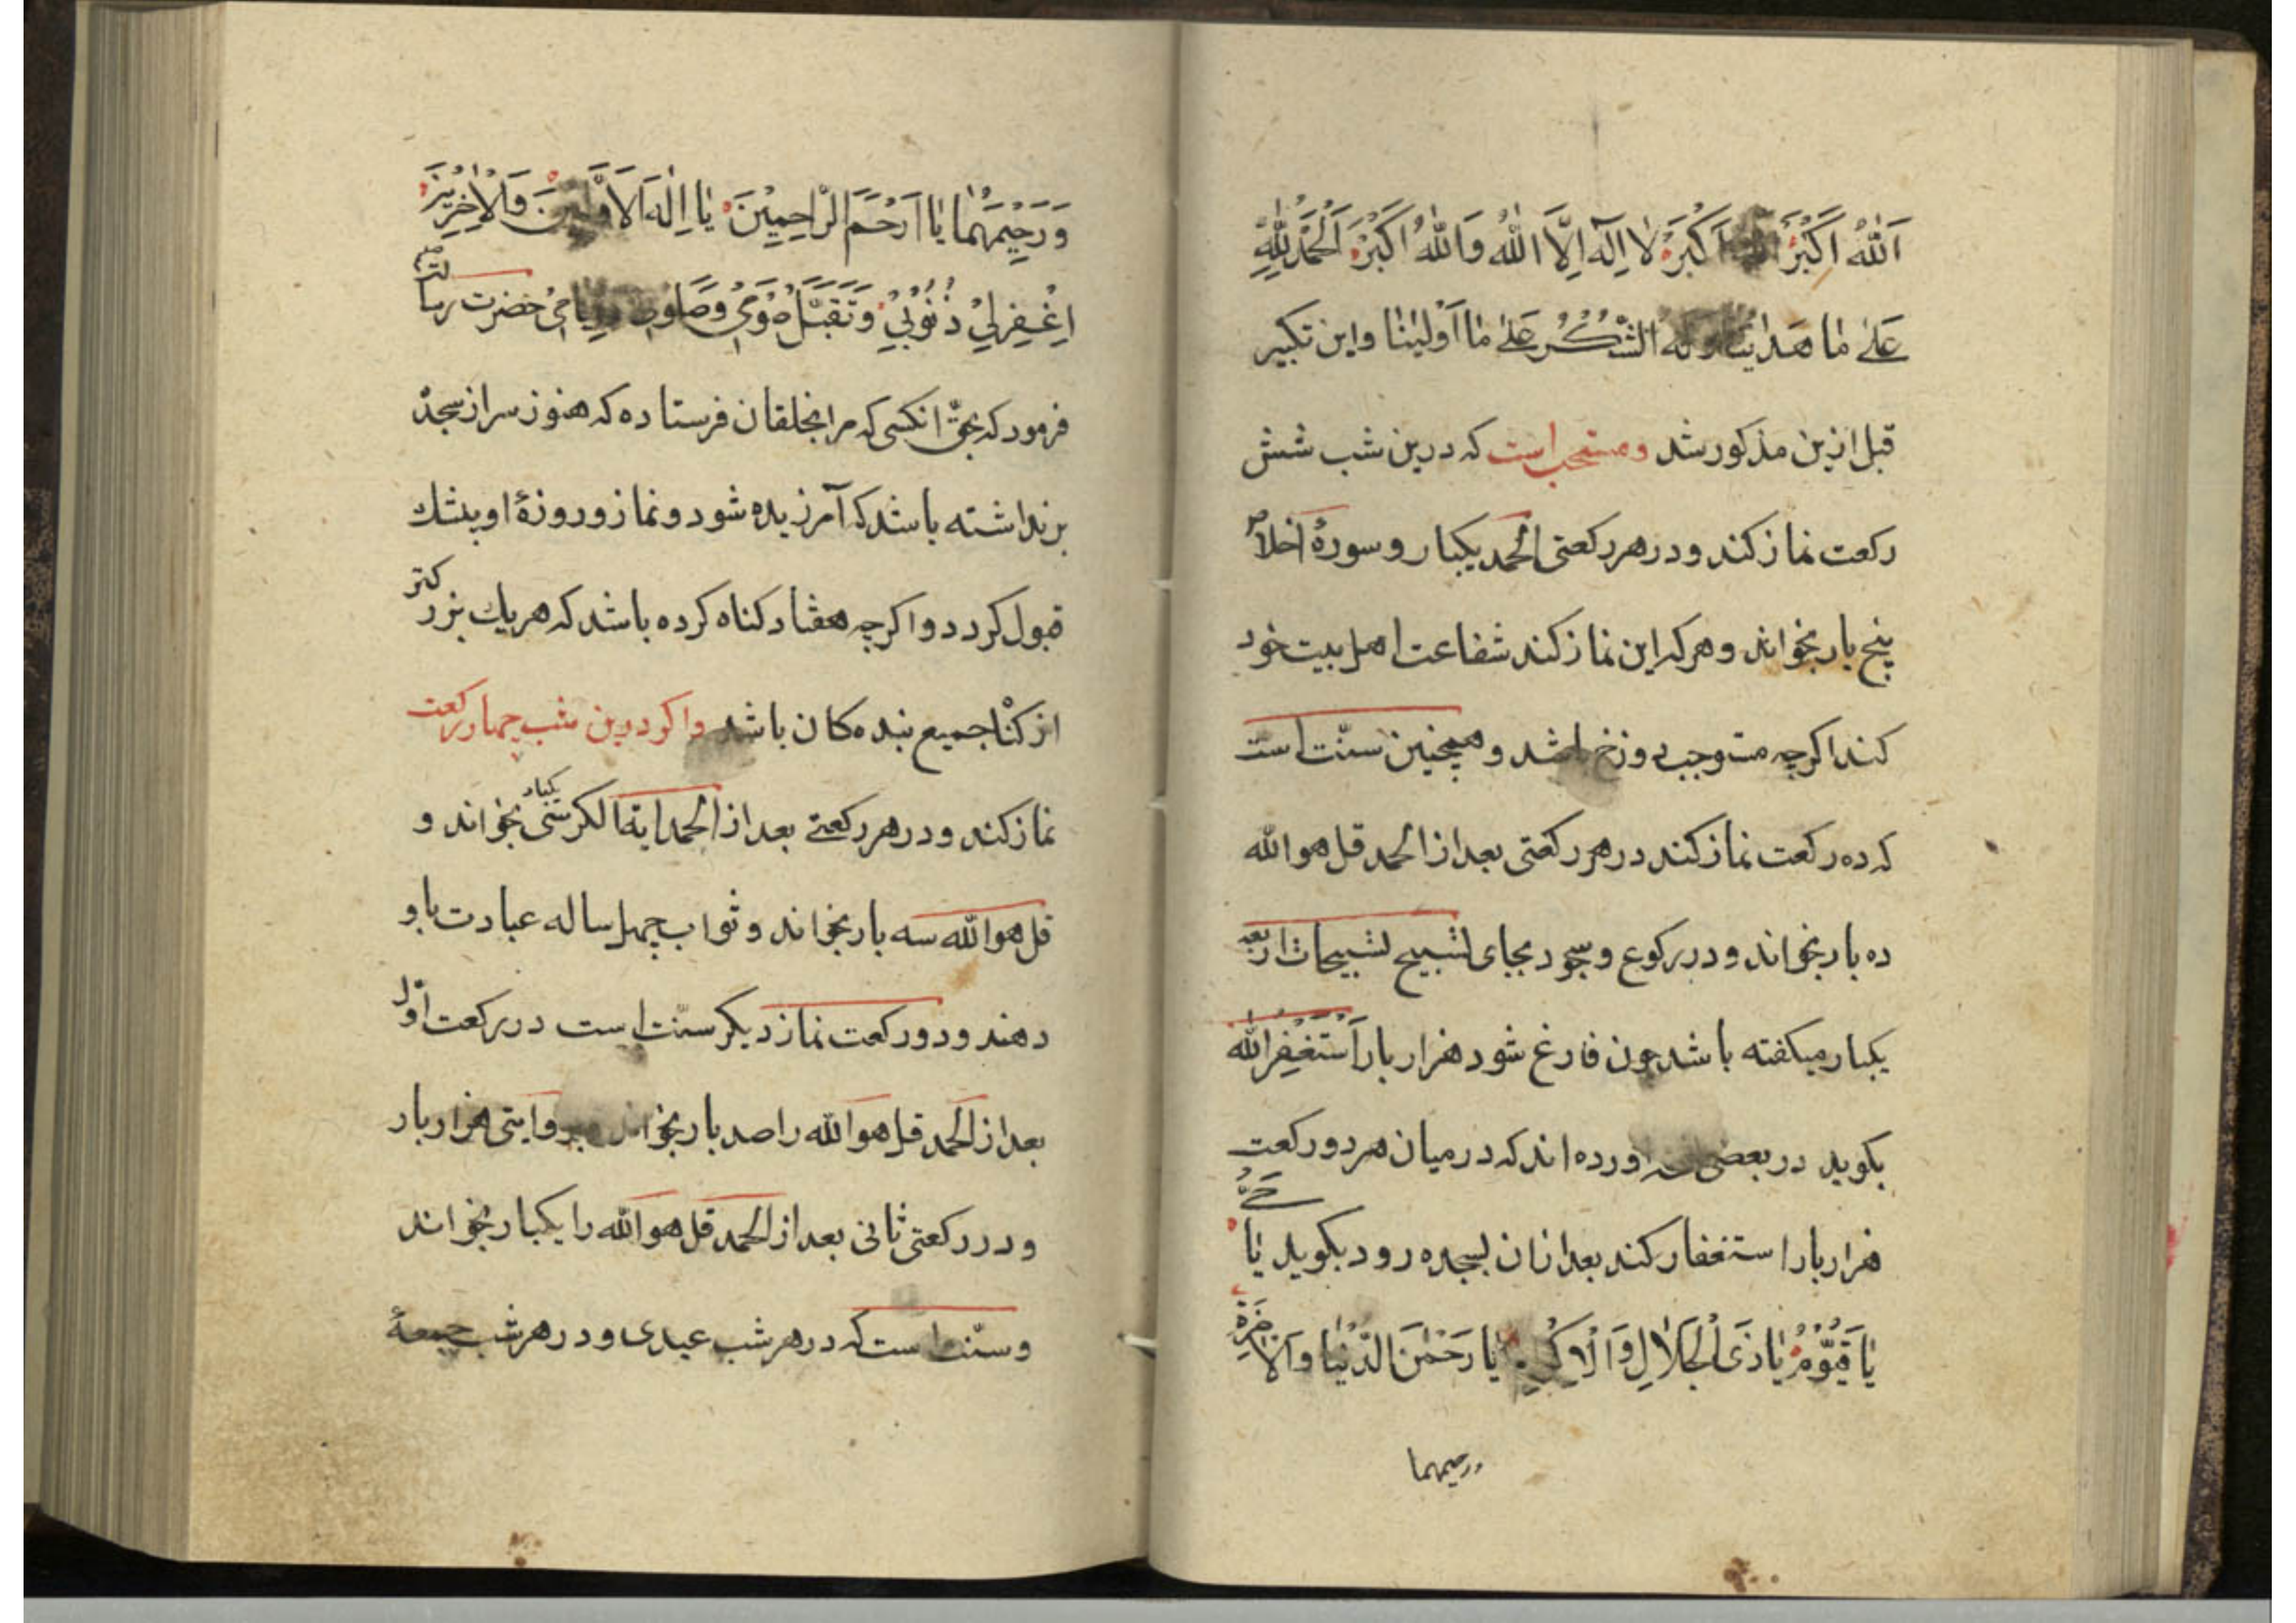 اَللهُ اَكْبَرُ اَكْبَرُ لا اِلٰهَ اِلَّا اللهُ وَاللهُ اَكْبَرُ اَلْحَمْدُ لِلّٰهِ
عَلىٰ مٰا هَدٰينٰا وله الشُّكْرُ عَلىٰ مٰا اَوْلٰينٰا واین تکبیر
قبل ازین مذکور شد ومستحب است که درین شب شش
رکعت نماز کند ودر هر رکعتی الحمد یکبار و سورهٔ اخلاص
پنج بار بخواند و هر که این نماز کند شفاعت اهل بیت خود
کند اکرچه مستوجب دوزخ باشد و همچنین سنّت است
که ده رکعت نماز کند در هر رکعتی بعد از الحمد قل هو الله
ده بار بخواند و در رکوع و سجود بجای تسبیح تسبیحات اربعه
یکبار میکفته باشد چون فارغ شود هزار بار اَسْتَغْفِرُ الله
بکوید در بعضی اورده اند که در میان هر دو رکعت
هزار بار استغفار کند بعد از ان بسجده رود بکوید یٰا حَيُّ
یٰا قَيُّوْمُ یٰا ذَى الْجَلٰالِ وَالْاِكْرٰامِ یٰا رَحْمٰنَ الدُّنْیٰا وَالْاٰخِرَةِ
ورحیمهما
وَرَحِیْمَهُمٰا یٰا اَرْحَمَ الرّٰاحِمِیْنَ یٰا اِلٰهَ الْاَوَّلِیْنَ وَالْاٰخِرِیْنَ
اِغْفِرْلِیْ ذُنُوْبِیْ وَتَقَبَّلْ صَوْمِیْ وَصَلٰوتِیْ وَقِیٰامِیْ حضرت رسالت
فرمود که بحقّ انکسی که مرا بخلقان فرستاده که هنوز سر از سجده
برنداشته باشد که آمرزیده شود و نماز و روزهٔ او بیشك
قبول کردد واکرچه هفتاد کناه کرده باشد که هر یك بزرکتر
از کناه جمیع بنده کان باشد واکر درین شب چهار رکعت
نماز کند و در هر رکعتے بعد از الحمد ایة الکرسی یکبار بخواند و
قل هو الله سه بار بخواند و ثواب چهل ساله عبادت باو
دهند و دو رکعت نماز دیکر سنّت است در رکعت اوّل
بعد از الحمد قل هو الله را صد بار بخواند وبروایتی هزار بار
و در رکعتی ثانی بعد از الحمد قل هو الله را یکبار بخواند
و سنّت است که در هر شب عیدی و در هر شب جمعهٔ